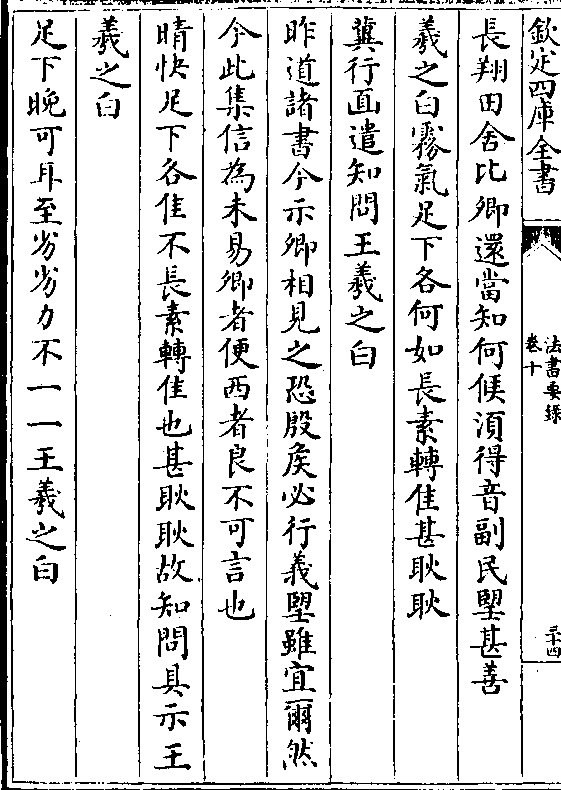 欽定四庫全書
法書要録
卷十
三十四
長翔田舍比卿還當知何候湏得音副民朢甚善
羲之白霧氣足下各何如長素轉佳甚耿耿
冀行面遣知問王羲之白
昨道諸書今示卿相見之恐殷矦必行義朢雖宜爾然
今此集信為未易卿者便西者良不可言也
晴快足下各佳不長素轉佳也甚耿耿故知問具示王
羲之白
足下晚可耳至劣劣力不一一王羲之白